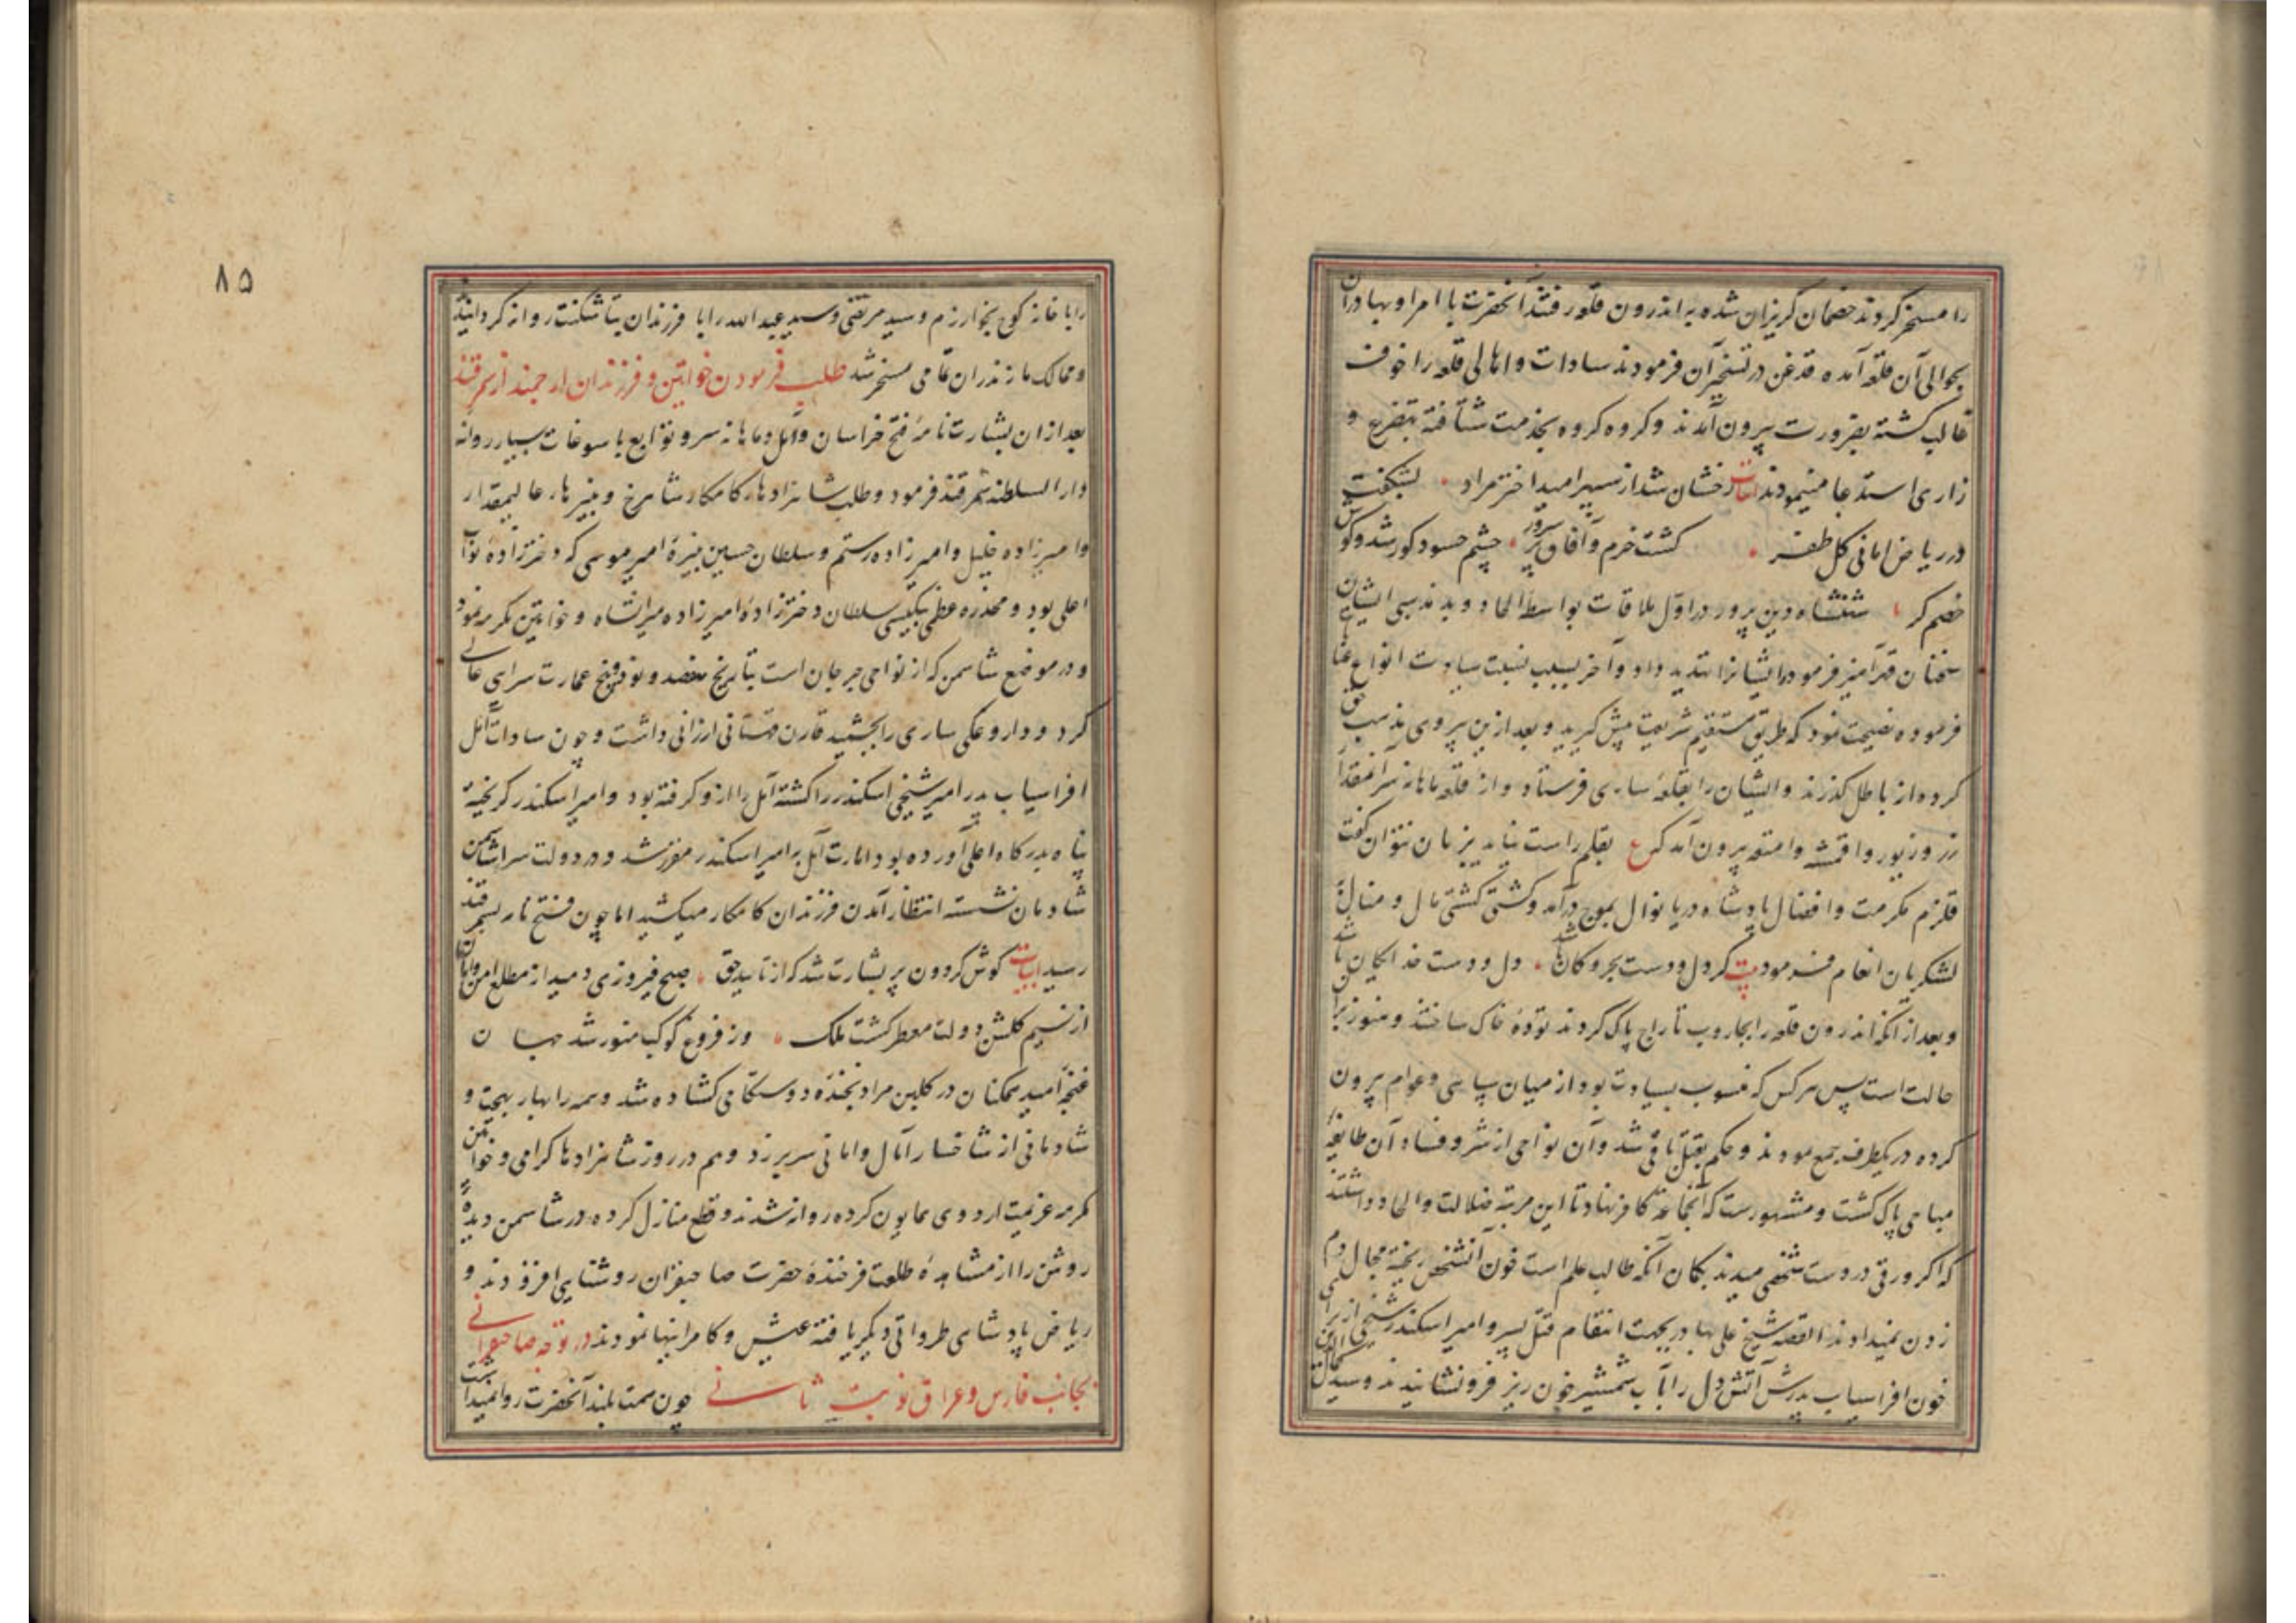 را مسخر کردند خصمان گریزان شده به اندرون قلعه رفتند آنحضرت با امرا و بهادران
بحوالی آن قلعه آمده قدغن در تسخیر آن فرمودند سادات و اهالی قلعه را خوف
غالب گشته بضرورت بیرون آمدند و گروه گروه بخدمت شتافته بتضرع و
زاری استدعا مینمودند ابیات درخشان شد از سپهر امید اختر مراد بشکفت
در ریاض امانی گل ظفر گشت خرم و آفاق پر سرور چشم حسود کور شد و گوش
خصم کر شهنشاه دین پرور در اول ملاقات بواسطه الحاد و بد مذهبی ایشان
سخنان قهرآمیز فرمود و ایشانرا تهدید داد و آخر بسبب نسبت سیادت انواع
فرموده نصیحت نمود که طریق مستقیم شریعت پیش گیرید و بعد ازین پیروی مذهب حق
کرده از باطل گذرند و ایشان را بقلعه ساری فرستاد و از قلعه ماهانه سر آنمقدار
زر و زیور و اقمشه و امتعه بیرون آمد که ع بقلم راست نیاید بزبان نتوان گفت
قلزم مکرمت و افضال پادشاه دریا نوال بموج درآمد و کشتی کشتی مال و منال
لشکریان انعام فرمود بیت گر دل و دست بحر و کان باشد دل و دست خدایگان باشد
و بعد از آنکه اندرون قلعه را بجاروب تاراج پاک کردند توده خاک ساختند و هنوز بر آن
حالت است پس هر کس که منسوب بسیادت بود از میان سپاهی و عوام بیرون
کرده در یکطرف جمع نمودند و حکم بقتل باقی شد و آن نواحی از شر و فساد آن طایفه
مباحی پاک گشت و مشهورست که آنجماعة کافر نهاد تا این مرتبه ضلالت و الحاد داشتند
که اگر ورقی در دست شخصی میدیدند بگمان آنکه طالب علم است خون آنشخص ریخته مجال دم
زدن نمیدادند القصه شیخ علی بهادر بجهت انتقام قتل پسر و امیر اسکندر شیخی از برای
خون افراسیاب پدرش آتش دل را بآب شمشیر خون ریز فرو نشانیدند و سید کمال الدین
۸۵
را با خانه کوچ بخوارزم و سید مرتضی و سید عبد الله را با فرزندان بتاشکنت روانه گردانیدند
و ممالک مازندران تمامی مسخر شد طلب فرمودن خواتین و فرزندان ارجمند از سمرقند
بعد از ان بشارت نامه فتح خراسان و آمل و ماهانه سر و توابع با سوغات بسیار روانه
دار السلطنه سمرقند فرمود و طلب شاهزادهای کامکار شاهرخ و نبیرهای عالیمقدار
و امیرزاده خلیل و امیرزاده رستم و سلطان حسین نبیرۀ امیر موسی که دخترزادۀ نواب
اعلی بود و مخدره عظمی بیکیسی سلطان دخترزادۀ امیرزاده میرانشاه و خواتین مکرمه نمود
و در موضع شاسمن که از نواحی جرجان است بتاریخ هفتصد و نود و پنج عمارت سرای عالی
کرد و داروغکی ساری را بجمشید قارن قهستانی ارزانی داشت و چون سادات آمل
افراسیاب پدر امیر شیخی اسکندر را کشته آمل را از او گرفته بود و امیر اسکندر گریخته
پناه بدرگاه اعلی آورده بود امارت آمل بر امیر اسکندر مقرر شد و در دولت سرا شاسمن
شادمان نشسته انتظار آمدن فرزندان کامکار میکشید اما چون فتح نامه بسمرقند
رسید ابیات گوش گردون پر بشارت شد که از تایید حق صبح فیروزی دمید از مطلع امن و امان
از نسیم گلشن دولت معطر گشت ملک وز فروغ کوکب منور شد جهان
غنچه امید همکنان در گلبن مراد بخنده دوستکامی گشاده شد و همه را بهار بهجت و
شادمانی از شاخسار آمال و امانی سر بر زد و هم در روز شاهزادها گرامی و خواتین
مکرمه عزیمت اردوی همایون کرده روانه شدند و قطع منازل کرده در شاسمن دیدۀ
روشن را از مشاهدۀ طلعت فرخندۀ حضرت صاحبقران روشنایی افزودند و
ریاض پادشاهی طراوتی دیگر یافته عیش و کامرانیها نمودند در توجه صاحبقرانی
بجانب فارس و عراق نوبت ثانی چون همت بلند آنحضرت روا نمیداشت